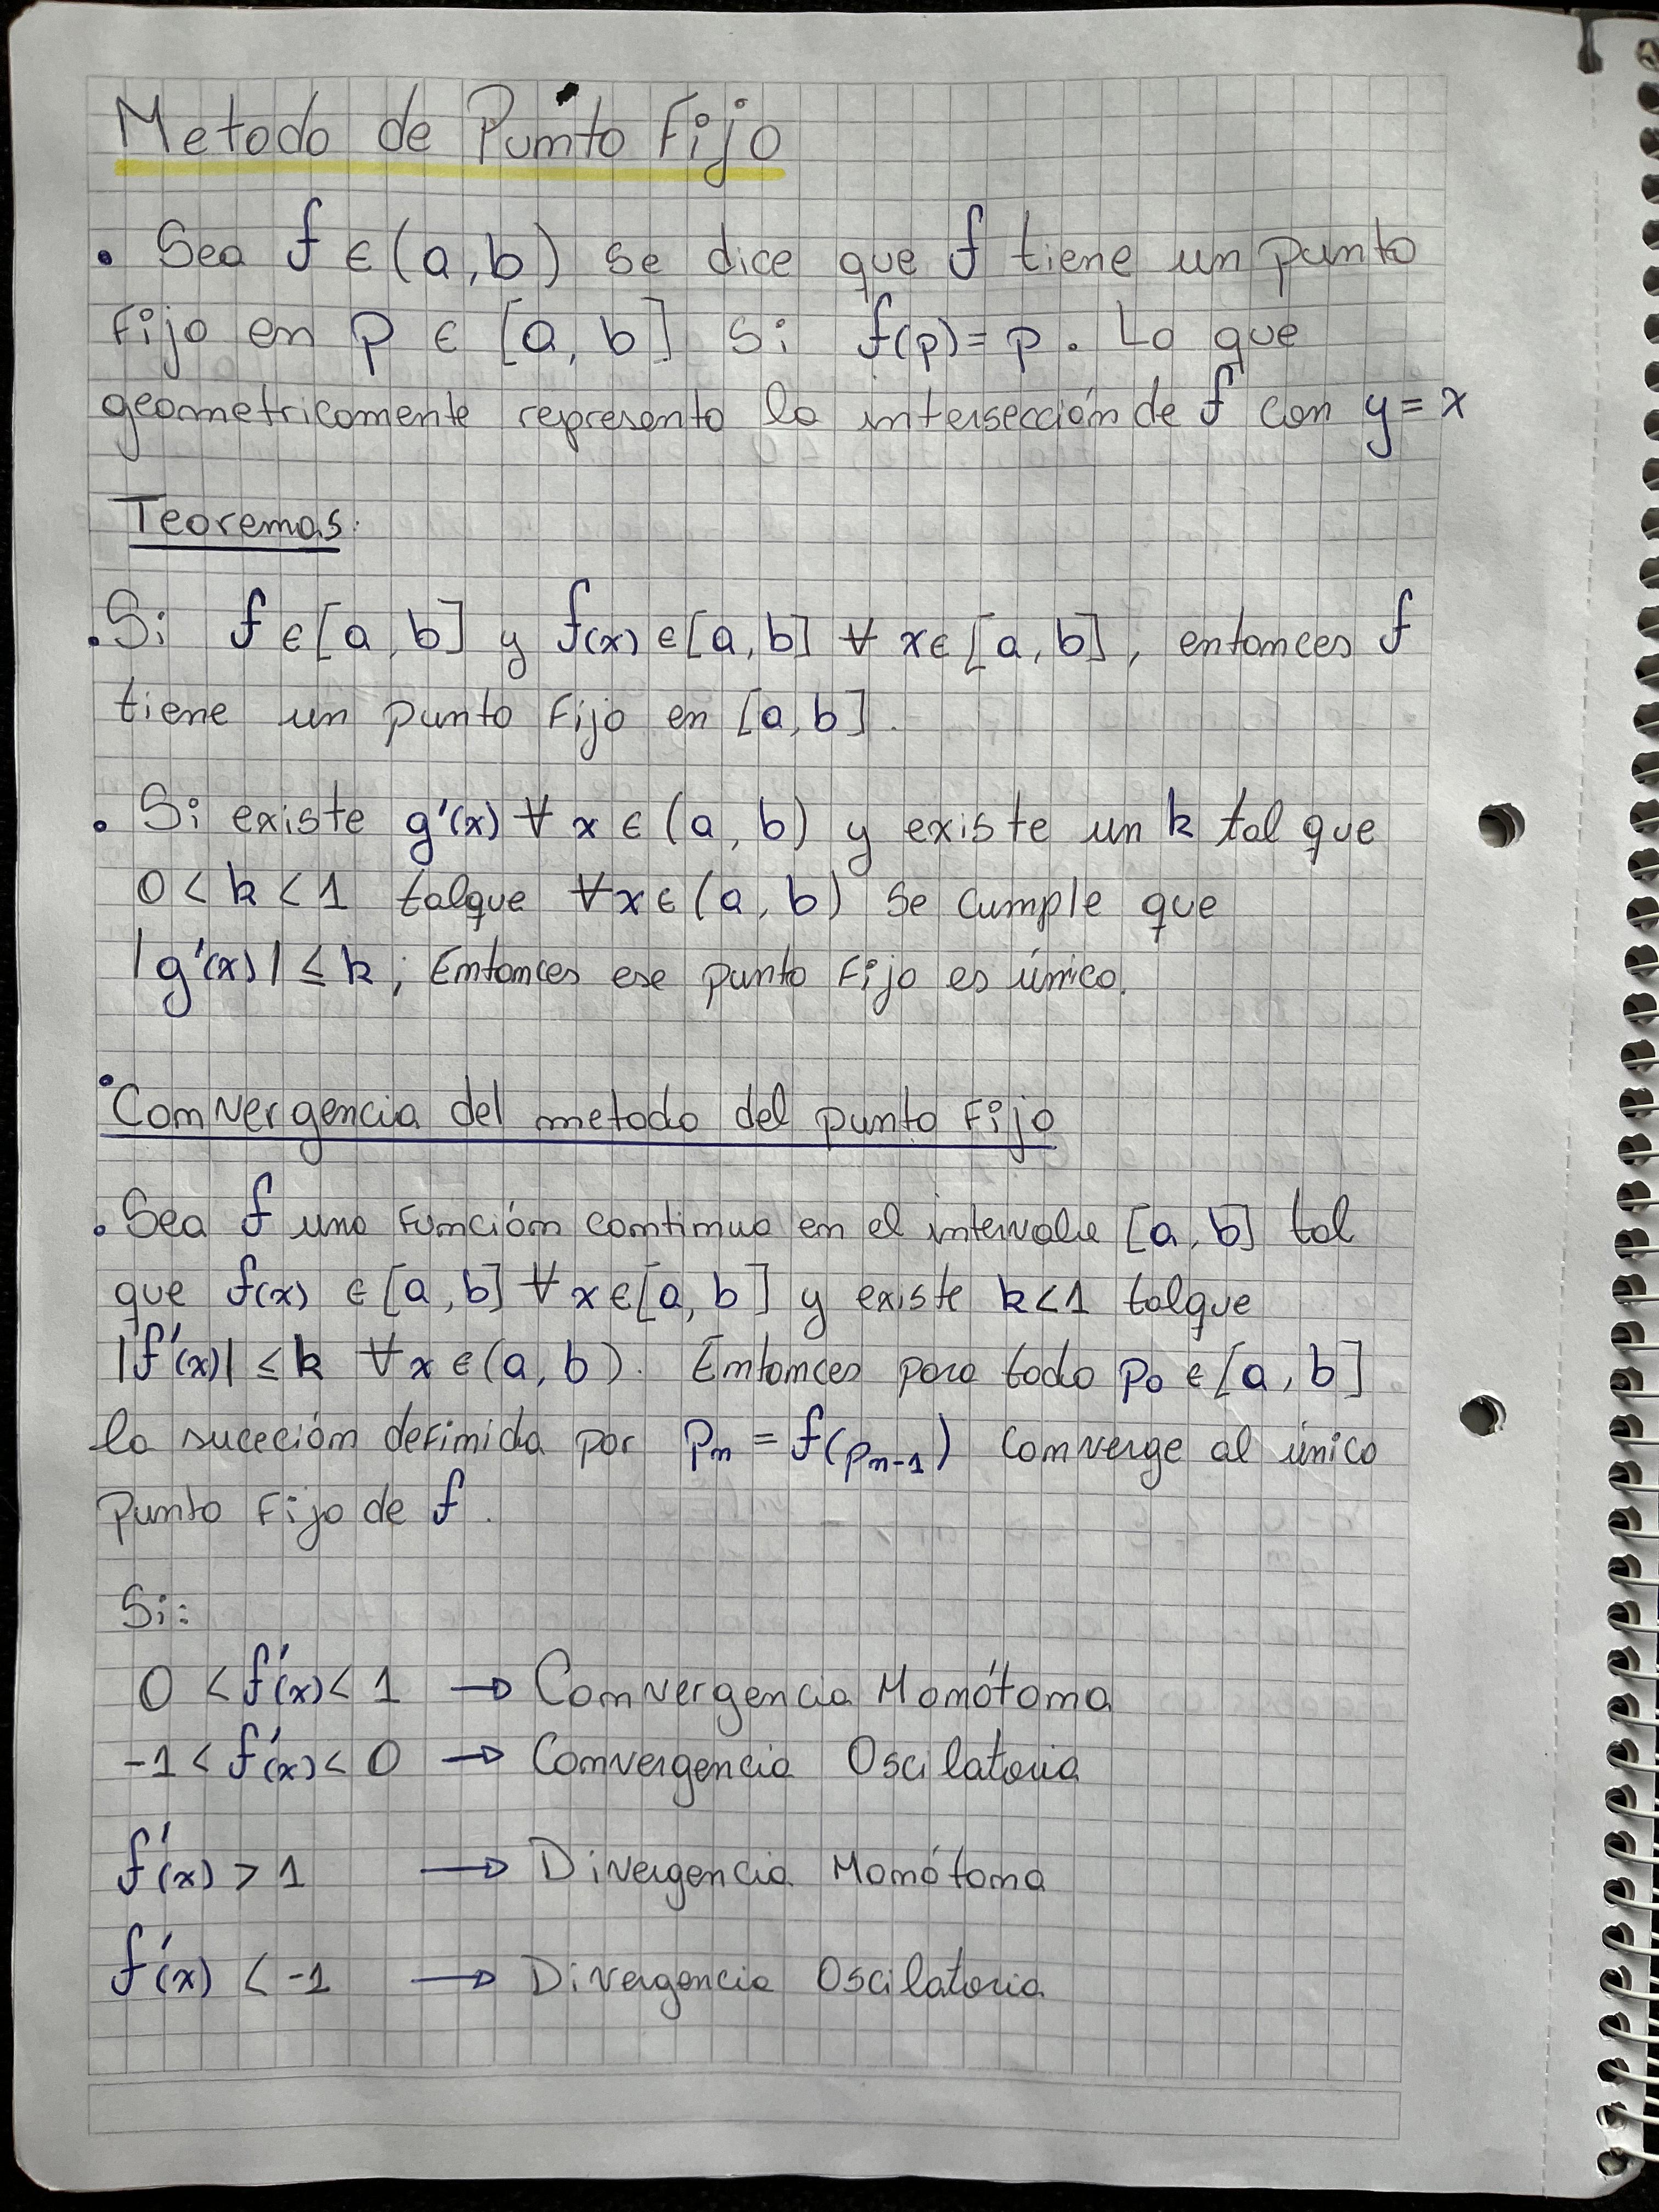 Metodo de Punto Fijo
• Sea f ∈ (a, b) se dice que f tiene un punto
Fijo en p ∈ [a, b] si f(p) = p. Lo que
geometricamente representa la intersección de f con y = x
Teoremas:
• Si f ∈ [a, b] y f(x) ∈ [a, b] ∀ x ∈ [a, b], entonces f
tiene un punto Fijo en [a, b].
• Si existe g'(x) ∀ x ∈ (a, b) y existe un k tal que
0 < k < 1 talque ∀x ∈ (a, b) se cumple que
|g'(x)| ≤ k; Entonces ese punto Fijo es único.
• Convergencia del metodo del punto Fijo
• Sea f una Función continua en el intervalo [a, b] tal
que f(x) ∈ [a, b] ∀x∈[a, b] y existe k<1 talque
|f'(x)| ≤ k ∀x ∈ (a, b). Entonces para todo p₀ ∈ [a, b]
la suceción definida por pₙ = f(pₙ₋₁) converge al único
Punto Fijo de f.
Si:
0 < f'(x) < 1 → Convergencia Monótona
-1 < f'(x) < 0 → Convergencia Oscilatoria
f'(x) > 1 → Divergencia Monótona
f'(x) < -1 → Divergencia Oscilatoria